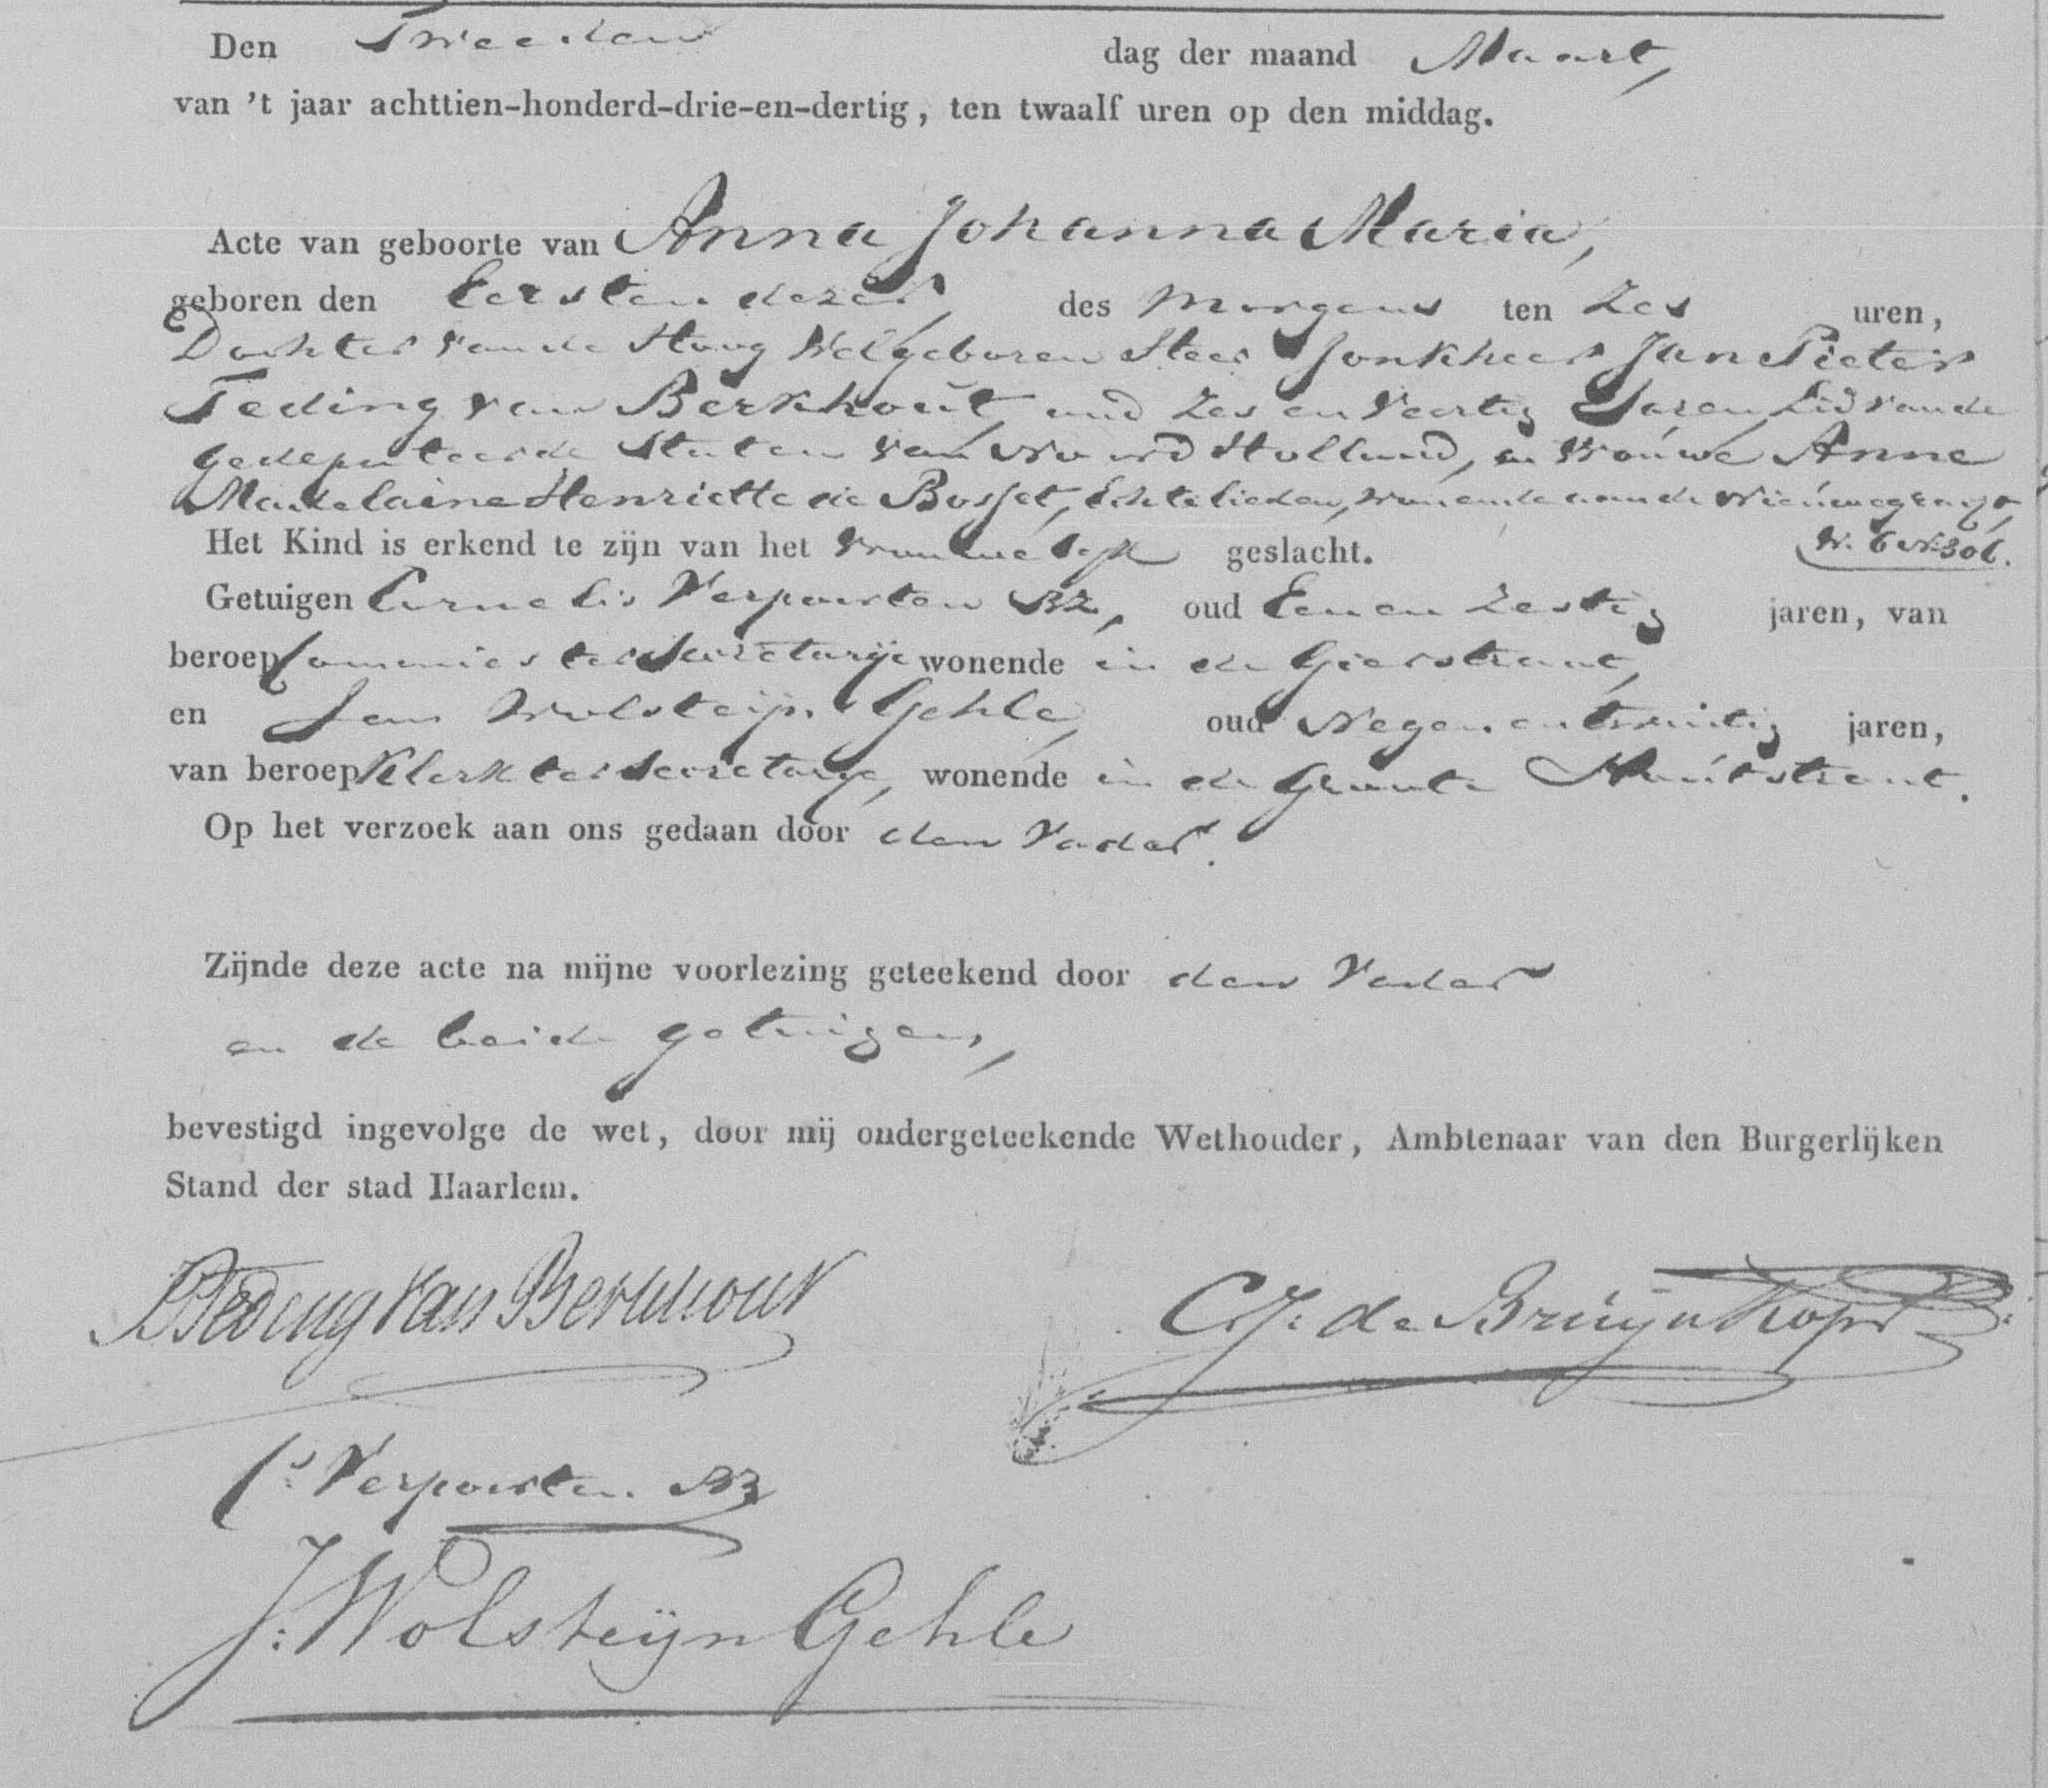 Den Tweeden dag der maand Maart,
van 't jaar achttien-honderd-drie-en-dertig, ten twaalf uren op den middag.
Acte van geboorte van Anna Johanna Maria,
geboren den Eersten dezer, des morgens ten Zes uren,
Dochter van de Hoog Welgeboren Heer Jonkheer Jan Pieter
Teding van Berkhout, oud Zes en Veertig Jaren Lid van de
gedeputeerde Staten van Noord Holland, en Vrouwe Anne
Madelaine Henriette de Bosset, Echtelieden, wonende aan de Nieuwegragt,
W. 6 N. 306.
Het Kind is erkend te zijn van het vrouwelijk geslacht.
Getuigen Cornelis Verpoorten Bz, oud Een en Zestig jaren, van
beroep Commies ter Secretarije wonende in de Gierstraat,
en Jan Wolsteijn Gehle, oud Negen en twintig jaren,
van beroep Klerk ter Secretarije, wonende in de Groote Houtstraat.
Op het verzoek aan ons gedaan door den Vader.
Zijnde deze acte na mijne voorlezing geteekend door den Vader
en de beide getuigen,
bevestigd ingevolge de wet, door mij ondergeteekende Wethouder, Ambtenaar van den Burgerlijken
Stand der stad Haarlem.
Teding van Berkhout
C. J. de Bruyn Kops
C.s Verpoorten Bz
J: Wolsteijn Gehle